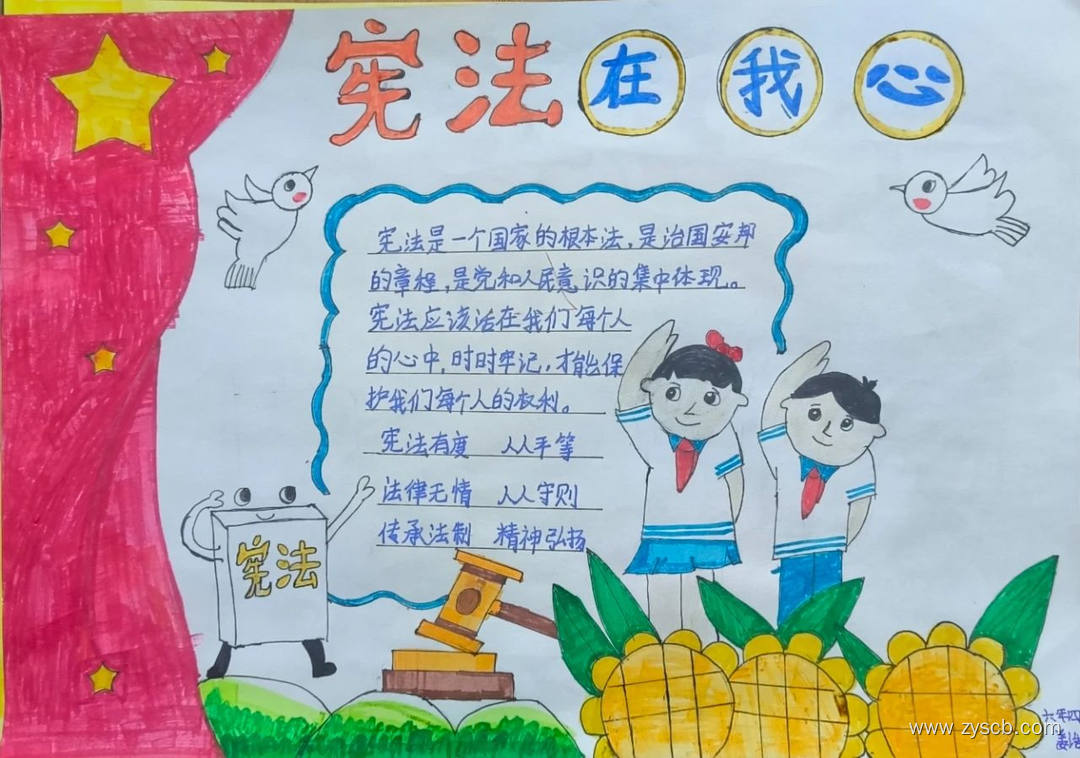 宪法在我心
宪法是一个国家的根本法,是治国安邦
的章程,是党和人民意识的集中体现。
宪法应该活在我们每个人
的心中,时时牢记,才能出保
护我们每个人的权利。
宪法有度 人人平等
法律无情 人人守则
传承法制 精神弘扬
宪法
www.zyscb.com